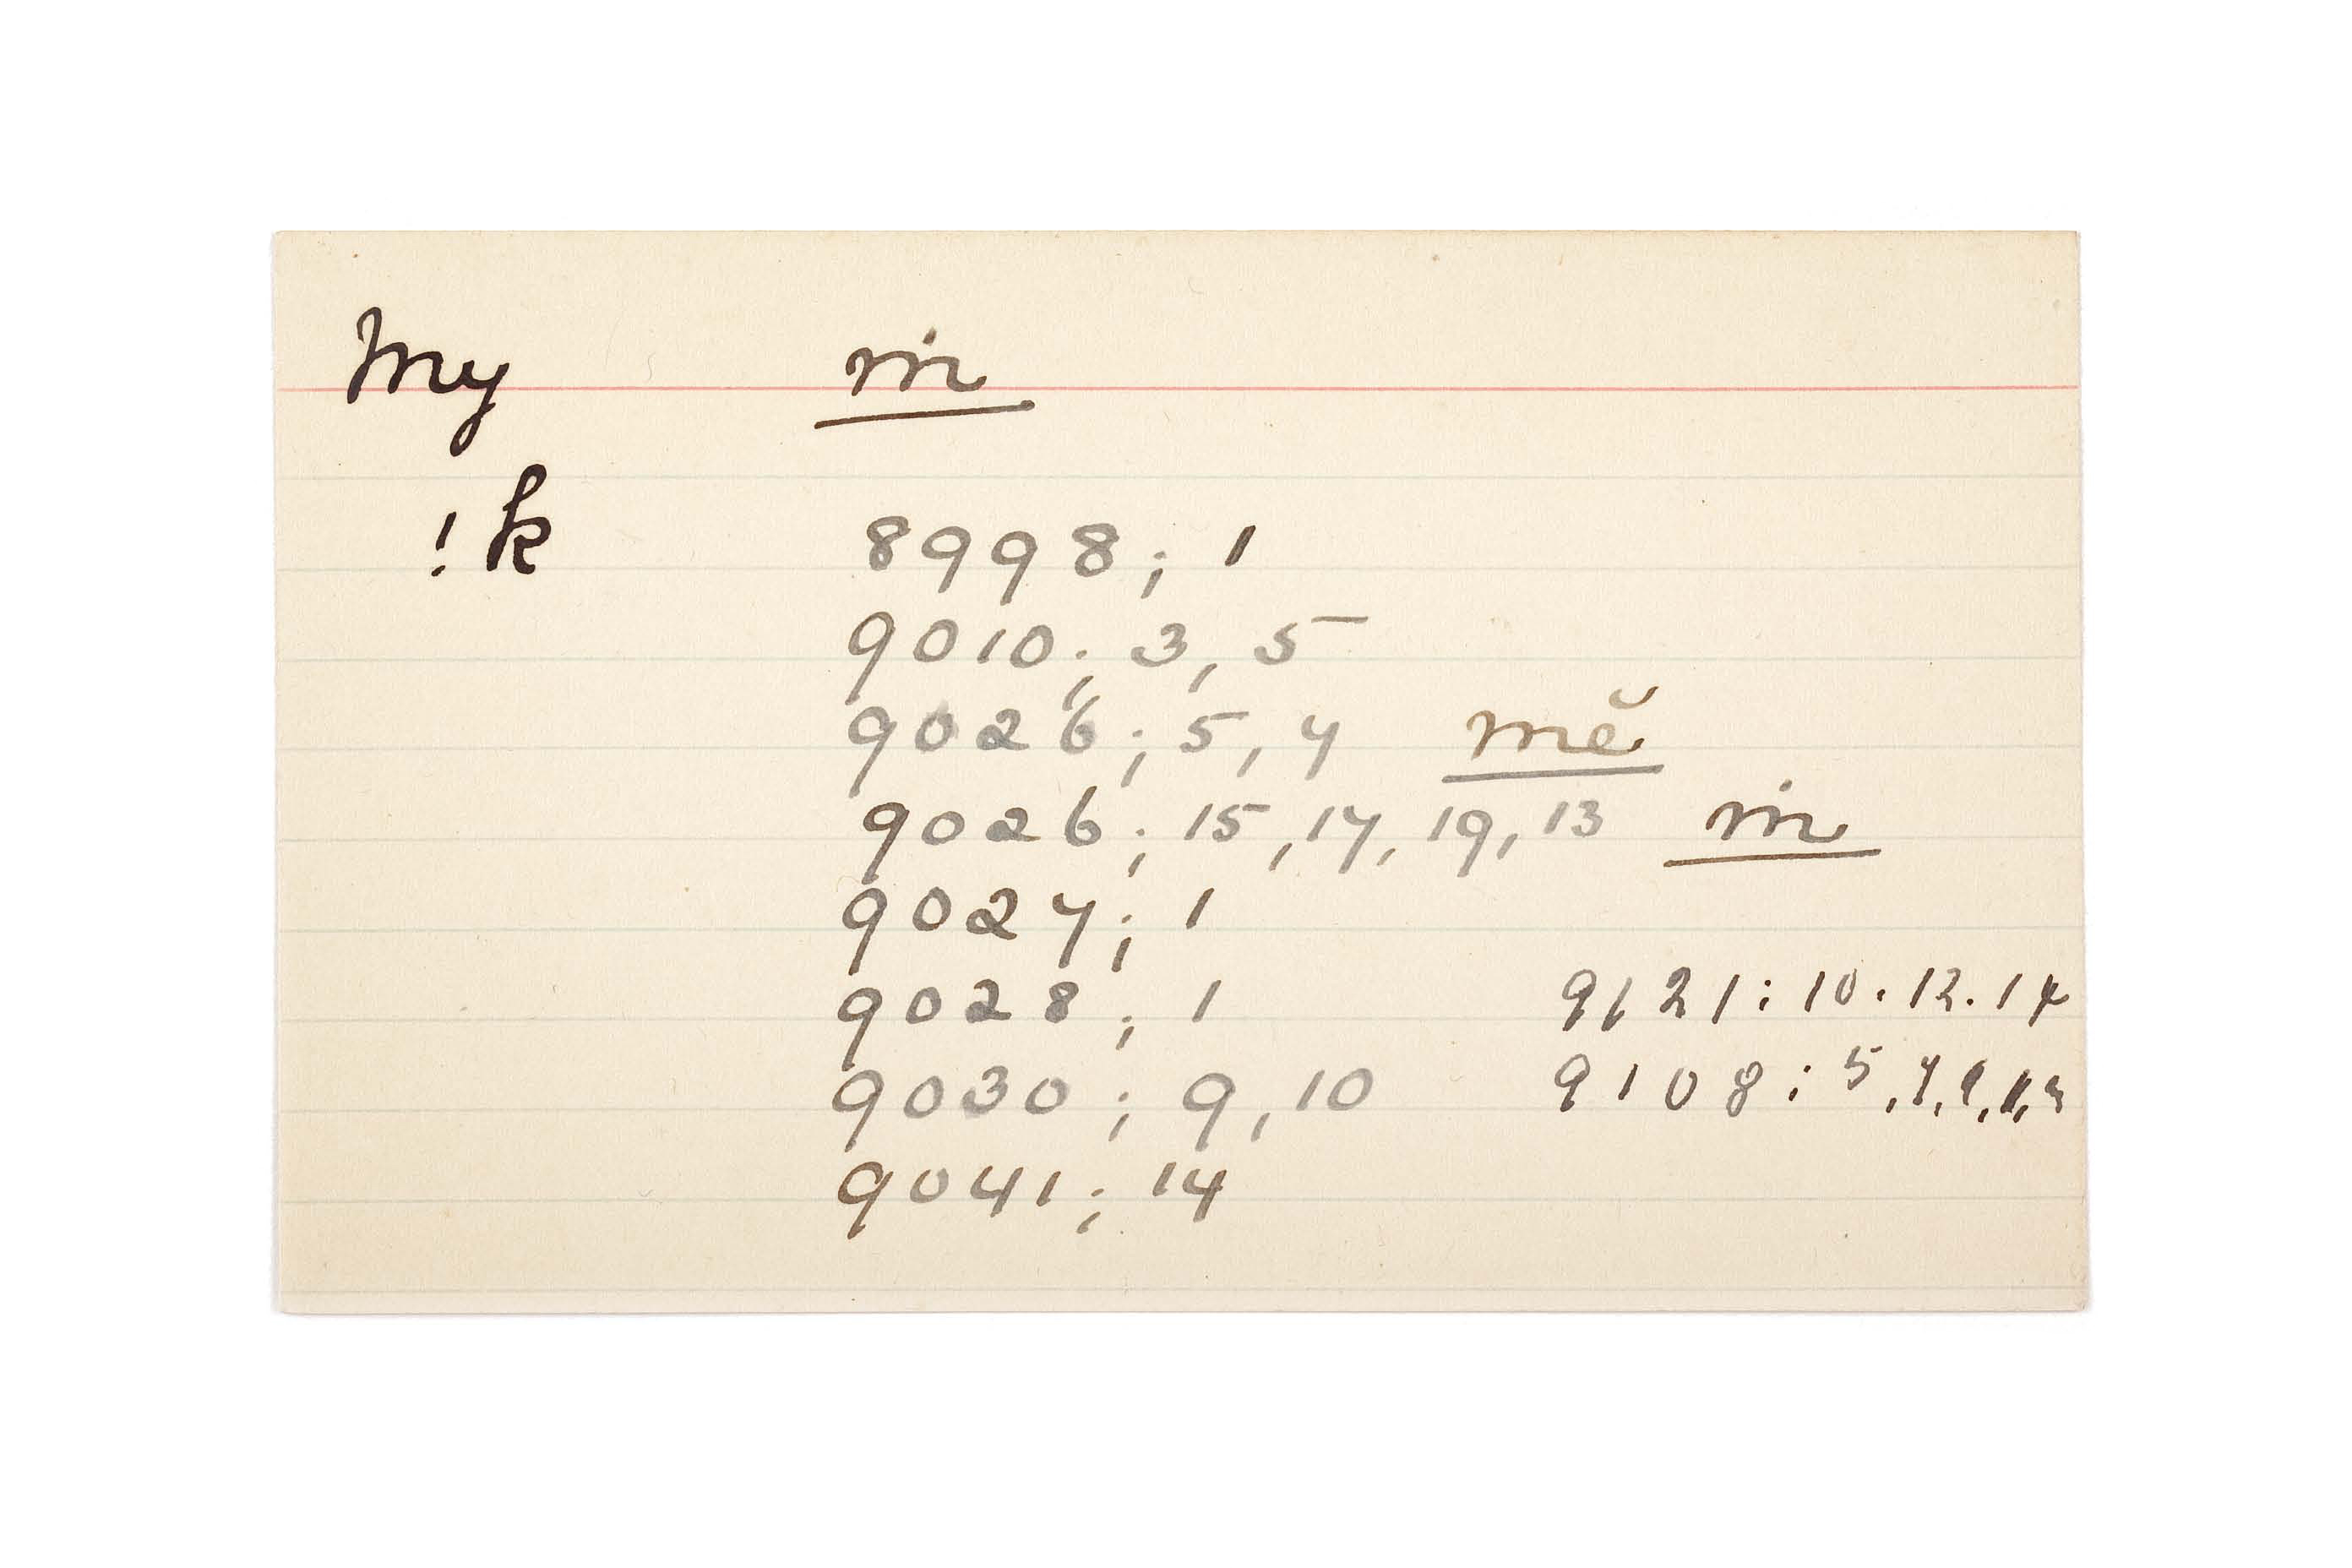 My ṁ
!k 8998; 1
9010; 3, 5
9026; 5, 7 mĕ
9026; 15, 17, 19, 13 ṁ
9027; 1
9028; 1 9121; 10. 12. 14
9030; 9, 10 9108; 5, 7, 9, 11,
9041; 14